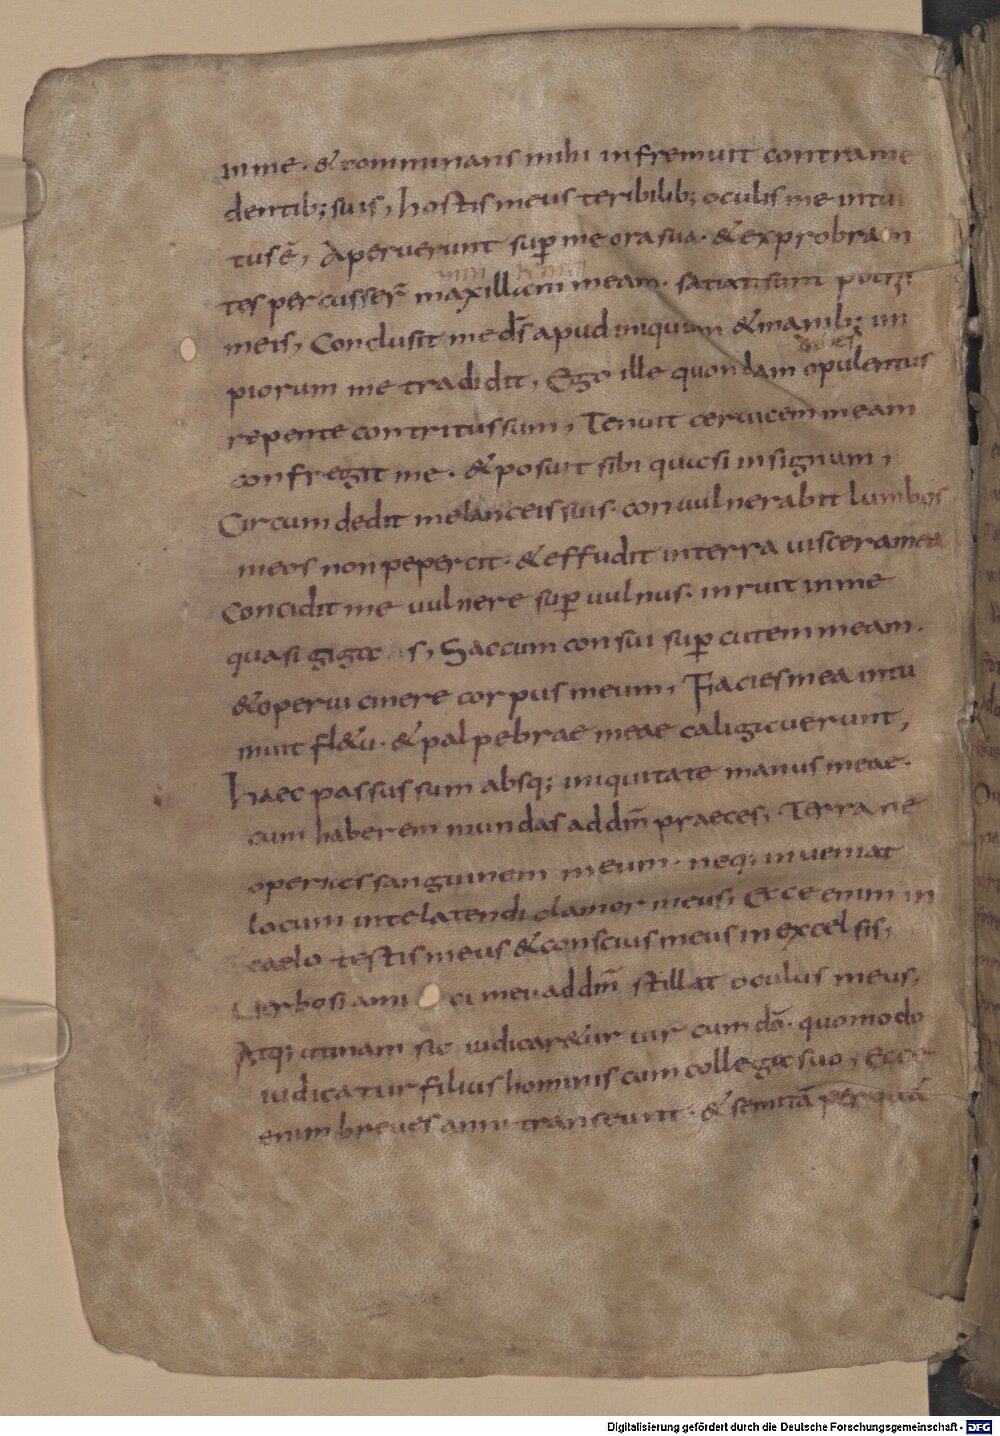 in me. & comminans mihi infremuit contra me
dentib; suis, hostis meus teribilib; oculis me intui
tus ē, Aperuerunt sup me ora sua. & exprobran
tes percusser̄ maxillam meam. satiati sunt
meis, Conclusit me d̄s apud iniquum & manib; im
piorum me tradidit, Ego ille quondam opulentus
repente contritus sum, Tenuit ceruicem meam
confregit me. & posuit sibi quasi in signum,
Circumdedit me lanceis suis. conuulnerabit lumbos
meos non pepercit. & effudit in terra uiscera mea
Concidit me uulnere sup uulnus. inruit in me
quasi gigas, Saccum consui sup cutem meam.
& operui cinere corpus meum, Facies mea intu
muit fl&u. & palpebrae meae caligauerunt,
haec passus sum absq; iniquitate manus meae.
cum haberem mundas ad dm̄ praeces, Terra ne
operias sanguinem meum. neq; inueniat
locum in te latendi clamor meus, Ecce enim in
caelo testis meus & conscius meus in excelsis,
Uerbosi amici mei. ad dm̄ stillat oculus meus,
Atq; utinam sic iudicar&ur uir cum dō. quomodo
iudicatur filius hominis cum collega suo, Ecce
enim breues anni transeunt. & semitā per quā
Digitalisierung gefördert durch die Deutsche Forschungsgemeinschaft - DFG